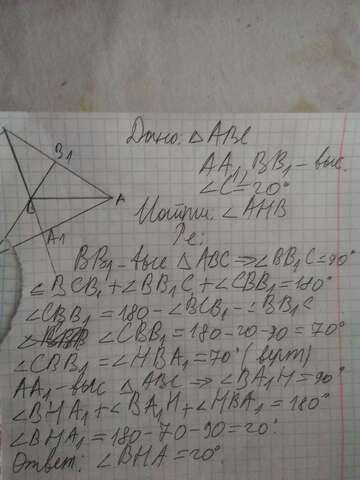 Дано: △ABC
B1
AA1, BB1 – выс.
∠C=20°
A
Найти: ∠AHB
A1
Ре:
BB1 – выс △ABC ⇒ ∠BB1C=90°
∠BCB1+∠BB1C+∠CBB1=180°
∠CBB1=180-∠BCB1-∠BB1C
∠CBB1=180-20-90=70°
∠CBB1=∠HBA1=70° (верт)
AA1 – выс △ABC ⇒ ∠BA1H=90°
∠BHA1+∠BA1H+∠HBA1=180°
∠BHA1=180-70-90=20°
Ответ: ∠BHA=20°.